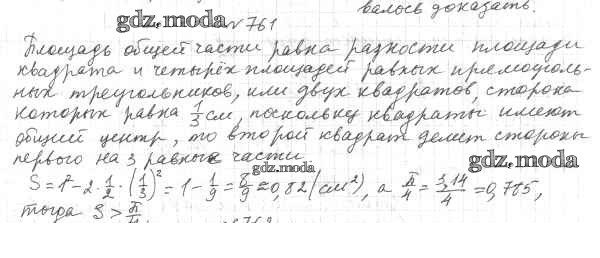 валось доказать.
gdz.moda
№761
Площадь общей части равна разности площади
квадрата и четырёх площадей равных прямоуголь-
ных треугольников, или двух квадратов, сторона
которых равна 1/3 см, поскольку квадраты имеют
общий центр, то второй квадрат делит стороны
первого на 3 равные части.
gdz.moda
gdz.moda
S = 1² - 2 · 1/2 · (1/3)² = 1 - 1/9 = 8/9 ≈ 0,82 (см²), а π/4 = 3,14/4 = 0,785,
тогда S > π/4